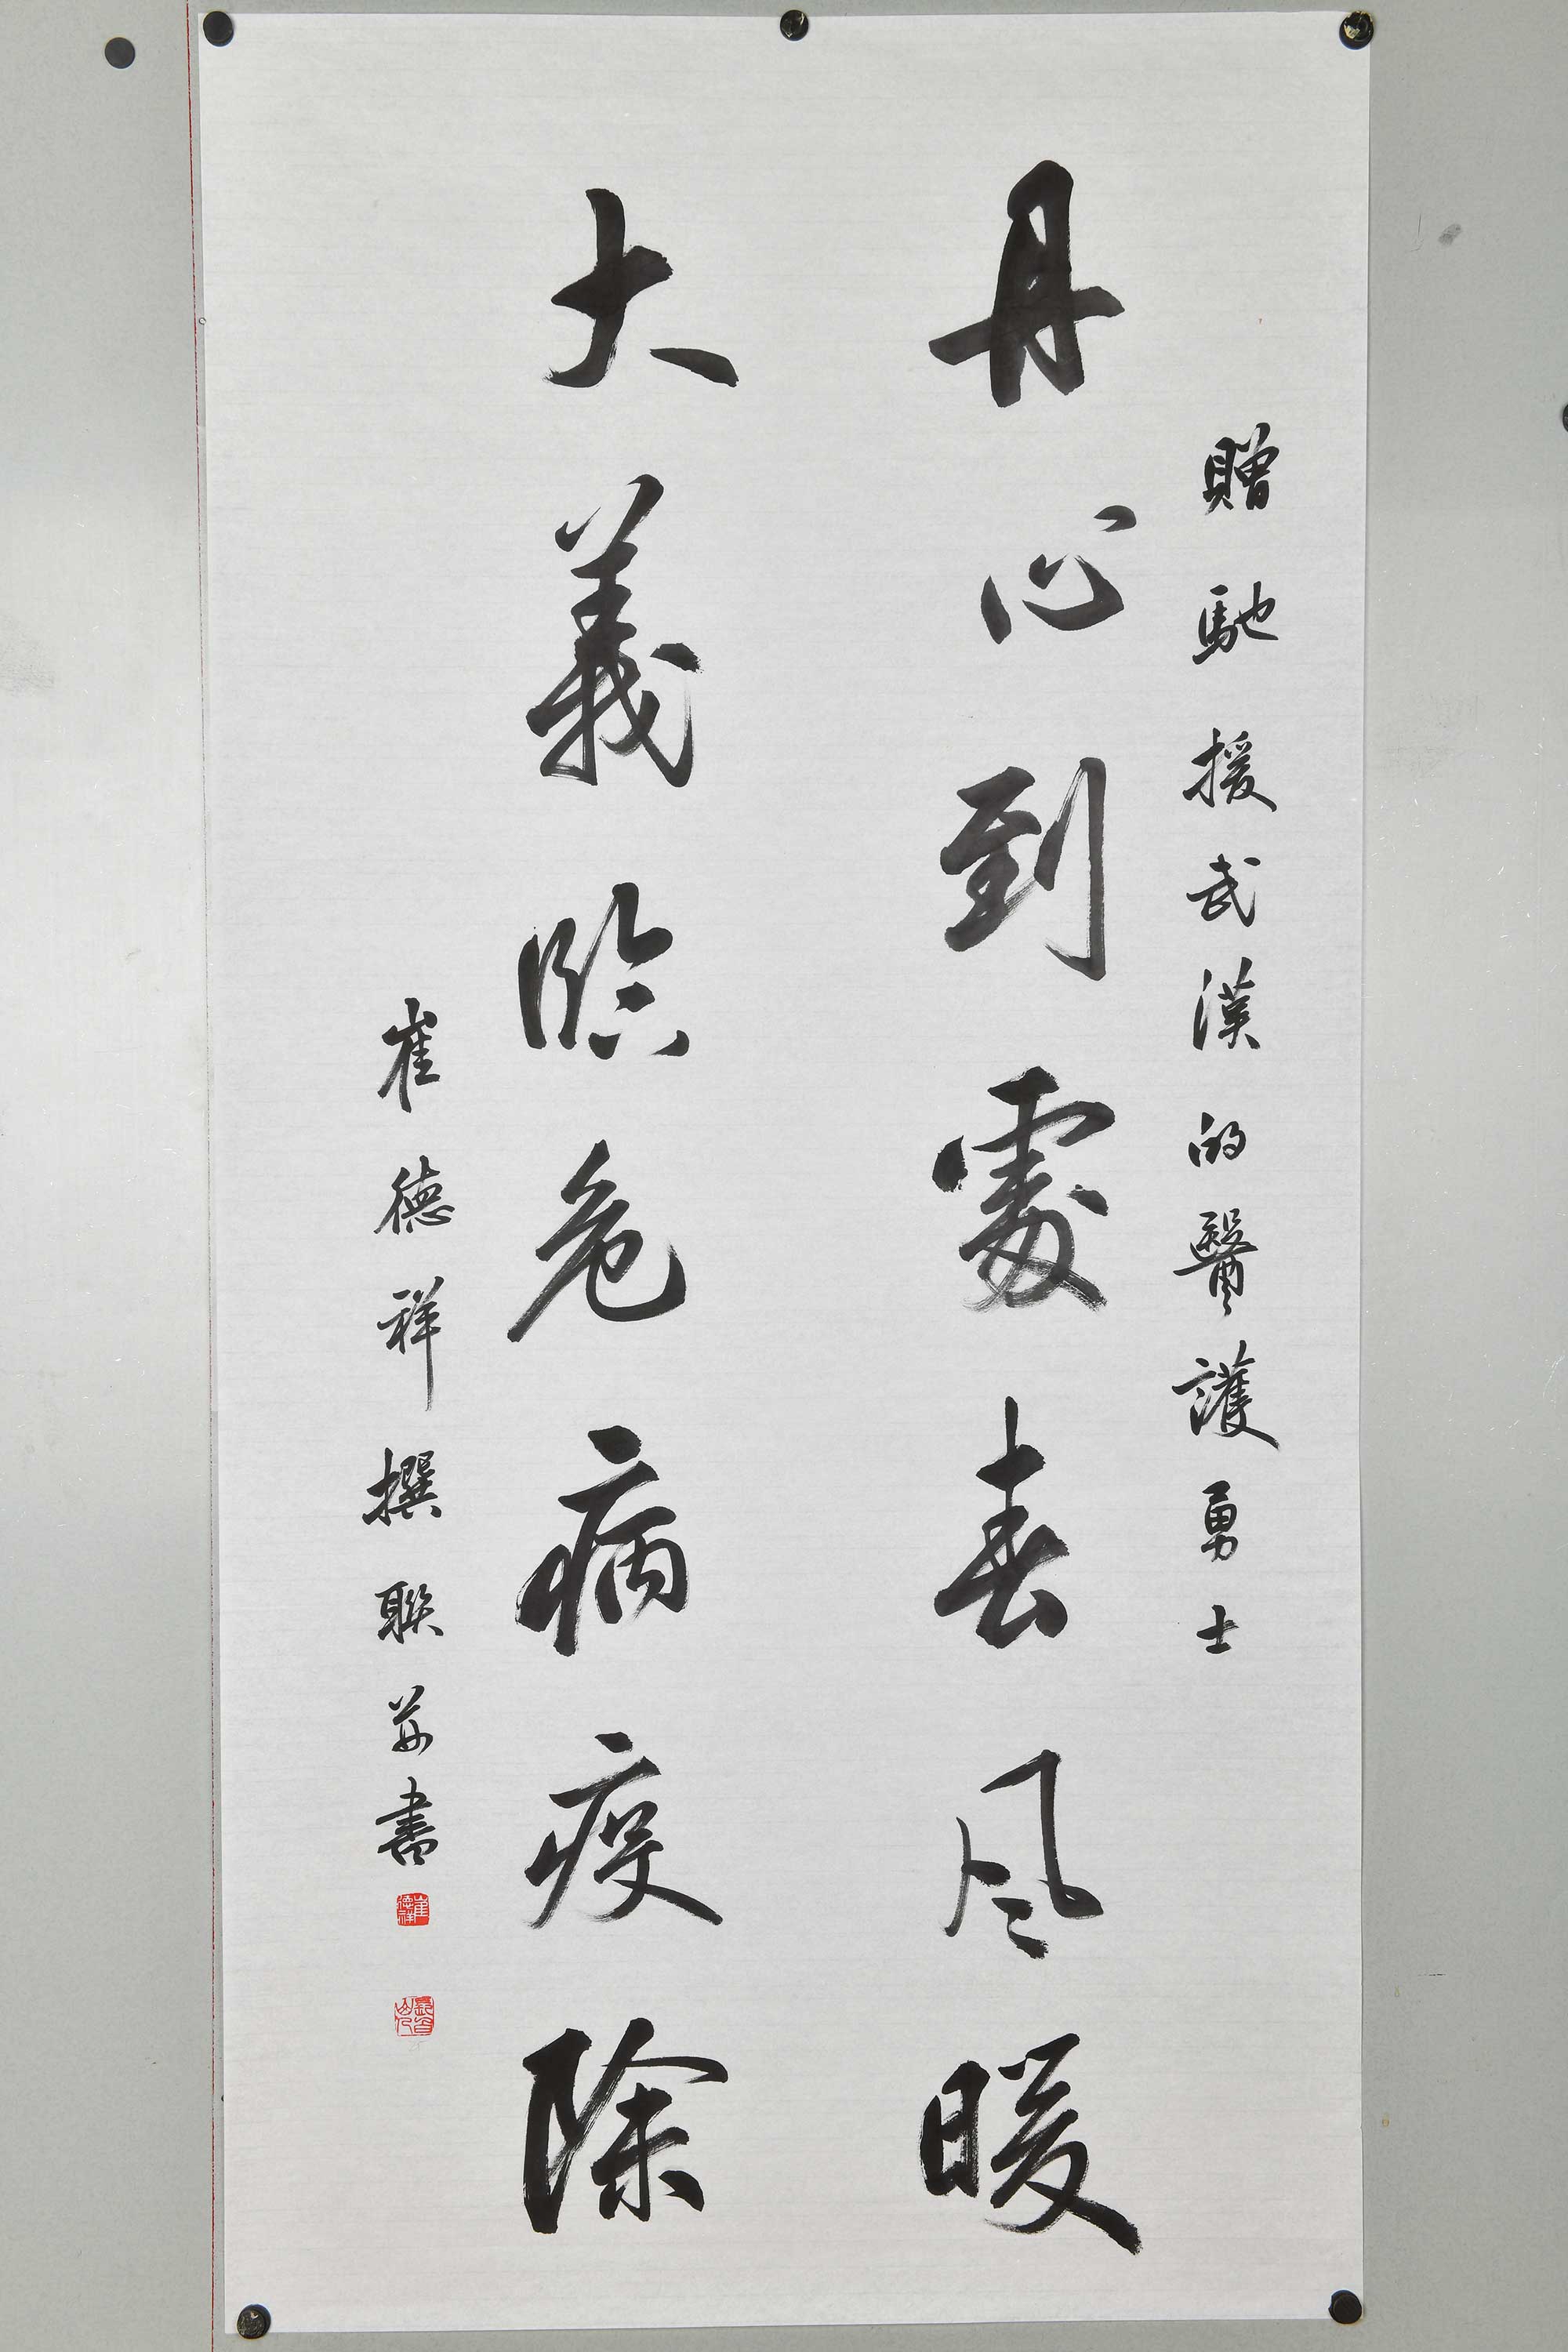 贈馳援武漢的醫護勇士
丹心到處春风暖
大義臨危病疫除
崔德祥撰聯並書
崔德祥